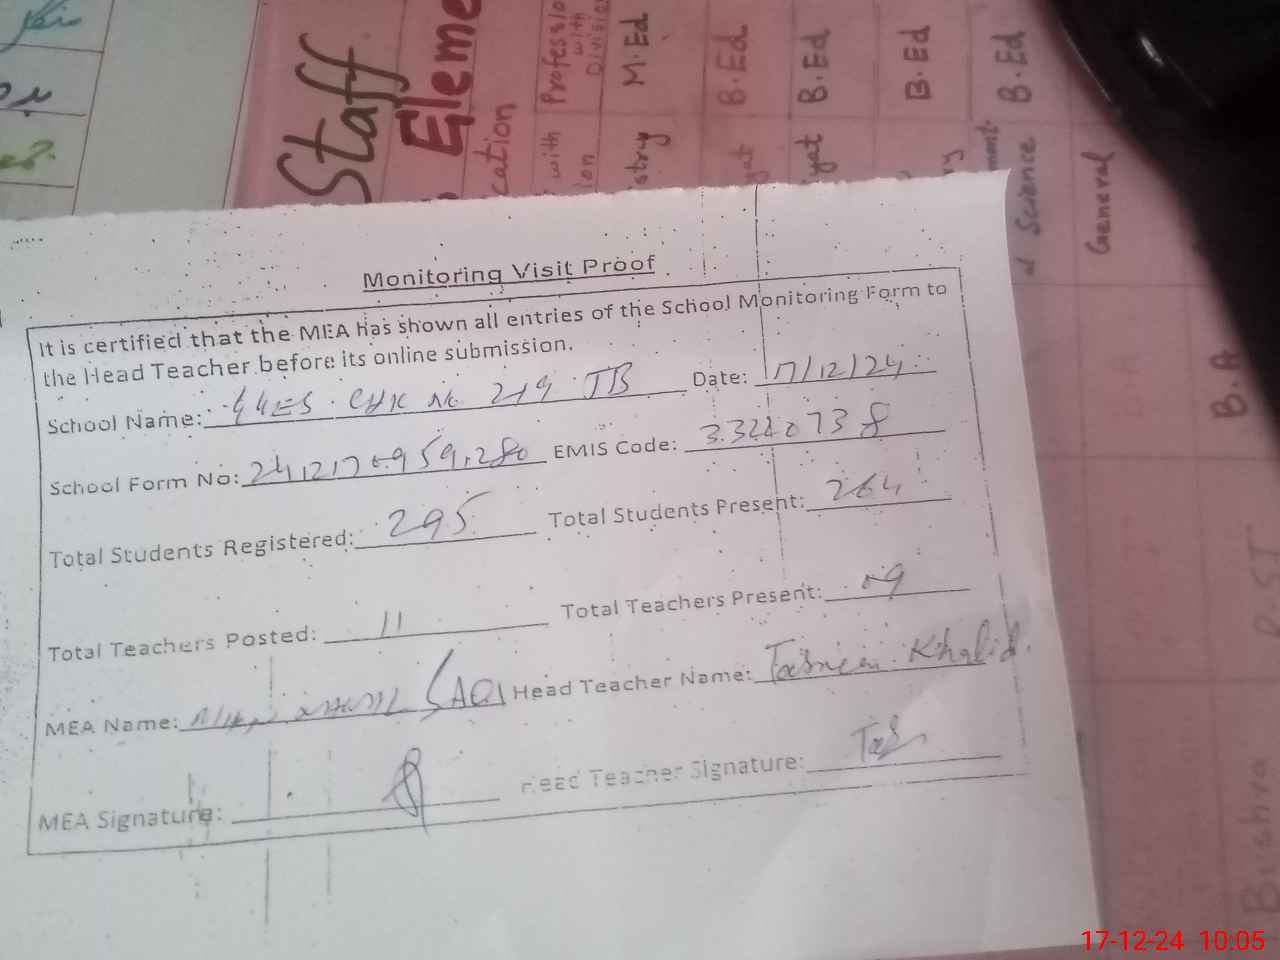 Staff
Eleme
cation
with Professio
with
Division
M.Ed
stry
B.Ed
yat
B.Ed
yat
B.Ed
B.Ed
Science
General
B.A
Bushra
Monitoring Visit Proof
It is certified that the MEA has shown all entries of the School Monitoring Form to
the Head Teacher before its online submission.
School Name: GGES CHK No 219 JB Date: 17/12/24
School Form No: EMIS Code: 33220738
Total Students Registered: 295 Total Students Present: 264
Total Teachers Posted: 11 Total Teachers Present: 09
MEA Name: Head Teacher Name: Tasneem Khalid.
MEA Signature: Head Teacher Signature: Tas
17-12-24 10:05